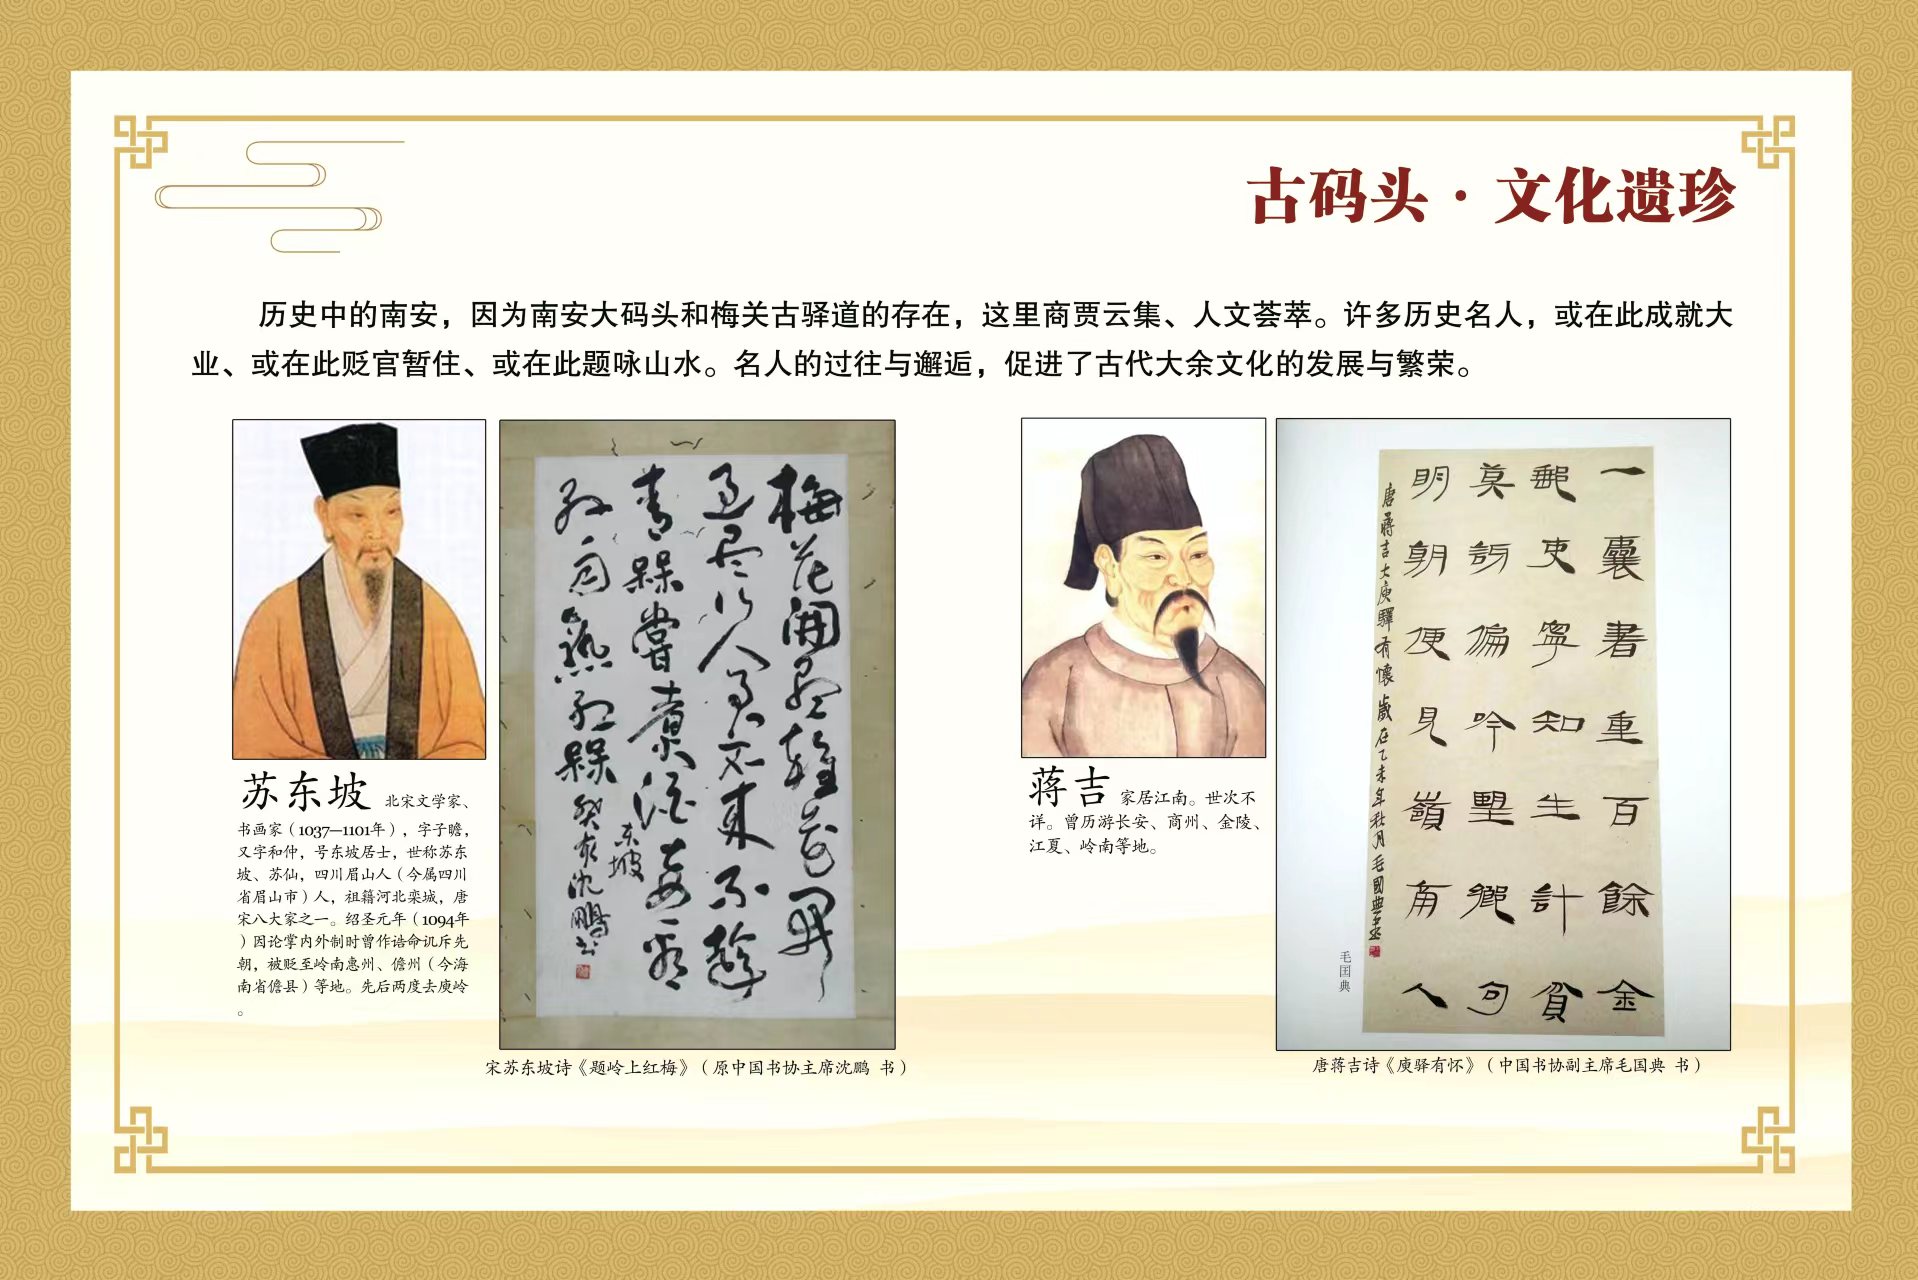 古码头·文化遗珍
历史中的南安，因为南安大码头和梅关古驿道的存在，这里商贾云集、人文荟萃。许多历史名人，或在此成就大
业、或在此贬官暂住、或在此题咏山水。名人的过往与邂逅，促进了古代大余文化的发展与繁荣。
苏东坡 北宋文学家、
书画家（1037—1101年），字子瞻，
又字和仲，号东坡居士，世称苏东
坡、苏仙，四川眉山人（今属四川
省眉山市）人，祖籍河北栾城，唐
宋八大家之一。绍圣元年（1094年
）因论掌内外制时曾作诰命讥斥先
朝，被贬至岭南惠州、儋州（今海
南省儋县）等地。先后两度去庾岭
。
梅花開尽雜花開
过尽行人君不来不趁
青梅嘗煮酒要看
紅梅
东坡
癸亥沈鹏书
宋苏东坡诗《题岭上红梅》（原中国书协主席沈鹏 书）
蒋吉 家居江南。世次不
详。曾历游长安、商州、金陵、
江夏、岭南等地。
一囊書重百餘金
郵吏寧知生計貧
莫訝偏吟望鄉句
明朝便見嶺南人
唐蔣吉大庾驛有懷 歲在乙未年秋月毛國典書
毛国典
唐蒋吉诗《庾驿有怀》（中国书协副主席毛国典 书）